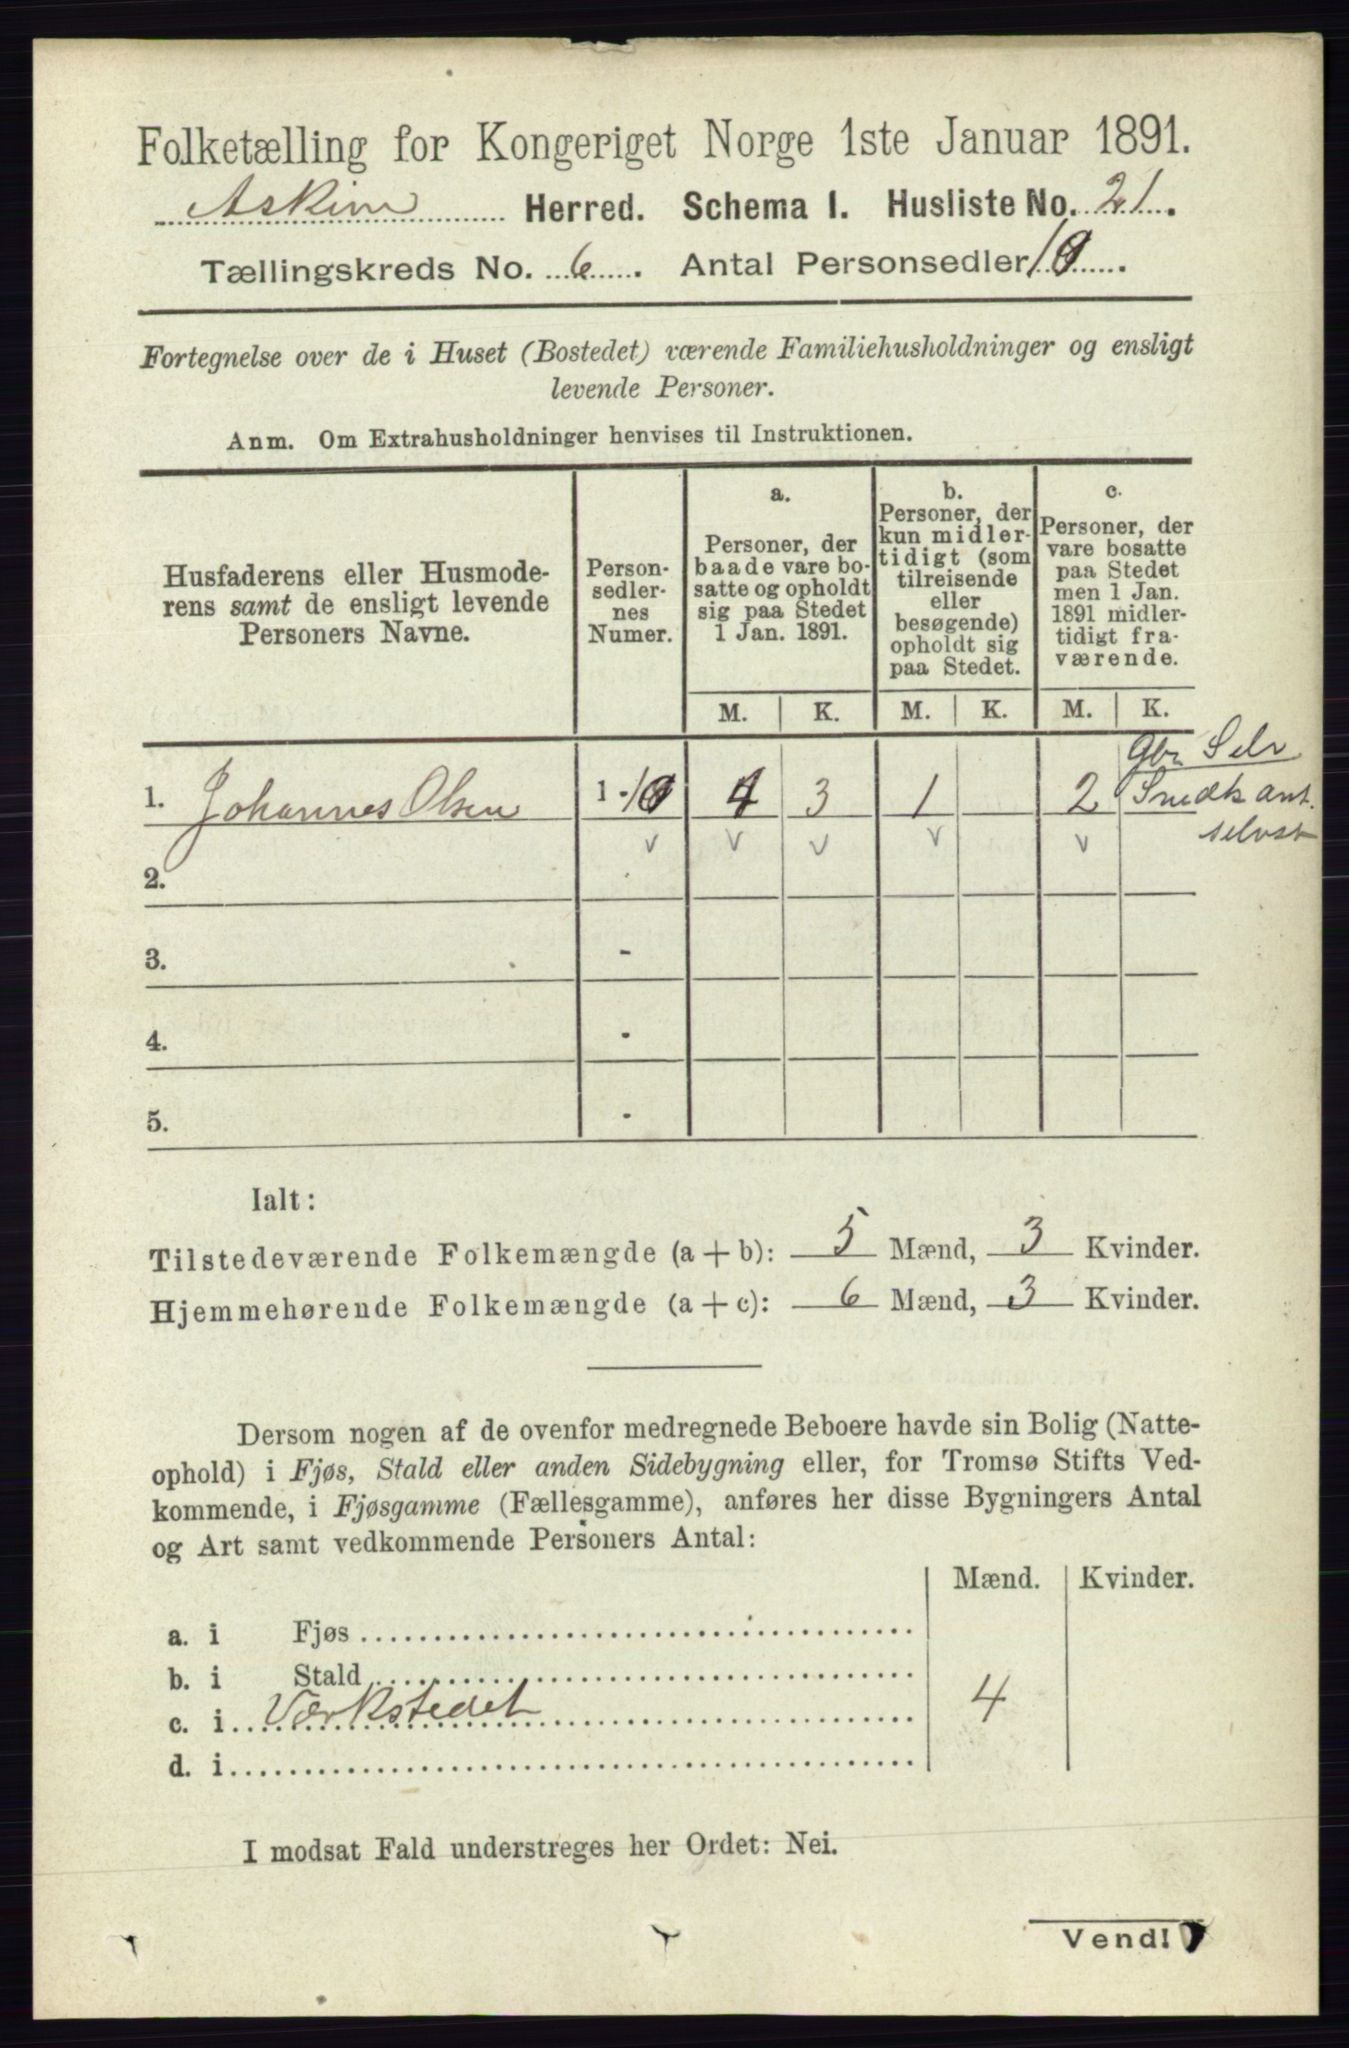 Folketælling for Kongeriget Norge 1ste Januar 1891.
Askim Herred. Schema I. Husliste No. 21.
Tællingskreds No. 6. Antal Personsedler 10.
Fortegnelse over de i Huset (Bostedet) værende Familiehusholdninger og ensligt
levende Personer.
Anm. Om Extrahusholdninger henvises til Instruktionen.
Husfaderens eller Husmode-
rens samt de ensligt levende
Personers Navne.
Person-
sedler-
nes
Numer.
a.
Personer, der
baade vare bo-
satte og opholdt
sig paa Stedet
1 Jan. 1891.
b.
Personer, der
kun midler-
tidigt (som
tilreisende
eller
besøgende)
opholdt sig
paa Stedet.
c.
Personer, der
vare bosatte
paa Stedet
men 1 Jan.
1891 midler-
tidigt fra-
værende.
M. K. M. K. M. K.
Gbr Selv
1. Johannes Olsen 1-10 4 3 1 2 Snedk ant.
selvst
2.
3. -
4. -
5. -
Ialt:
Tilstedeværende Folkemængde (a + b): 5 Mænd, 3 Kvinder.
Hjemmehørende Folkemængde (a + c): 6 Mænd, 3 Kvinder.
Dersom nogen af de ovenfor medregnede Beboere havde sin Bolig (Natte-
ophold) i Fjøs, Stald eller anden Sidebygning eller, for Tromsø Stifts Ved-
kommende, i Fjøsgamme (Fællesgamme), anføres her disse Bygningers Antal
og Art samt vedkommende Personers Antal:
Mænd. Kvinder.
a. i Fjøs
b. i Stald
c. i Værkstedet 4
d. i
I modsat Fald understreges her Ordet: Nei.
Vend!